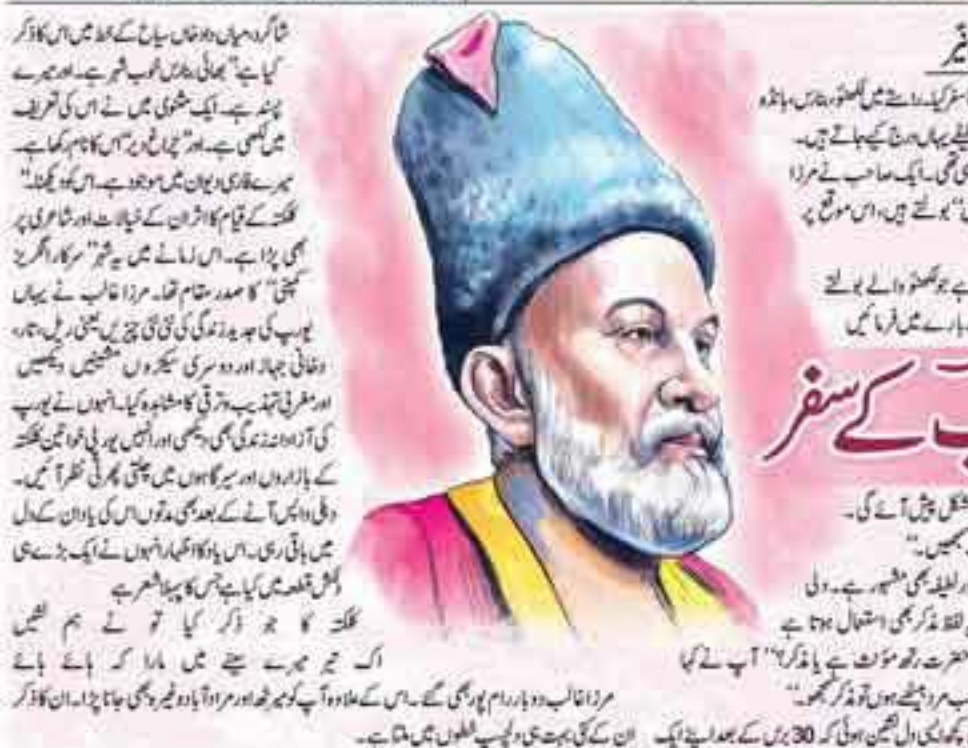 سفر کیا۔ راستے میں لکھنؤ، بنارس، باندہ
یہاں درج کیے جاتے ہیں۔
تھی۔ ایک صاحب نے مرزا
بولتے ہیں، اس موقع پر
ہے جو لکھنؤ والے بولتے
بارے میں فرمائیں
کے سفر
مشکل پیش آئے گی۔
لطیفہ بھی مشہور ہے۔ دلی
لفظ مذکر بھی استعمال ہوتا ہے
حضرت رتھ مؤنث ہے یا مذکر؟" آپ نے کہا
مرد بیٹھے ہوں تو مذکر سمجھو۔"
کچھ ایسی دل نشین ہوئی کہ 30 برس کے بعد اپنے ایک
شاگرد میاں داد خاں سیاح کے خط میں اس کا ذکر
کیا ہے "بھائی بنارس خوب شہر ہے۔ اور میرے
پسند ہے۔ ایک مثنوی میں نے اس کی تعریف
میں لکھی ہے۔ اور "چراغ دیر" اس کا نام رکھا ہے۔
میرے فارسی دیوان میں موجود ہے۔ اس کو دیکھنا۔"
کلکتہ کے قیام کا اثر ان کے خیالات اور شاعری پر
بھی پڑا ہے۔ اس زمانے میں یہ شہر "سرکار انگریز
کمپنی" کا صدر مقام تھا۔ مرزا غالب نے یہاں
یورپ کی جدید زندگی کی نئی نئی چیزیں یعنی ریل، تار،
دخانی جہاز اور دوسری سیکڑوں مشینیں دیکھیں
اور مغربی تہذیب و ترقی کا مشاہدہ کیا۔ انہوں نے یورپ
کی آزادانہ زندگی بھی دیکھی اور انہیں یورپی خواتین کلکتہ
کے بازاروں اور سیر گاہوں میں چلتی پھرتی نظر آئیں۔
دہلی واپس آنے کے بعد بھی مدتوں اس کی یاد ان کے دل
میں باقی رہی۔ اس یاد کا اظہار انہوں نے ایک بڑے ہی
دلکش قطعہ میں کیا ہے جس کا پہلا شعر ہے
کلکتہ کا جو ذکر کیا تو نے ہم نشیں
اک تیر میرے سینے میں مارا کہ ہائے ہائے
مرزا غالب دو بار رام پور بھی گئے۔ اس کے علاوہ آپ کو میرٹھ اور مراد آباد وغیرہ بھی جانا پڑا۔ ان کا ذکر
ان کے کئی بہت ہی دلچسپ خطوں میں ملتا ہے۔